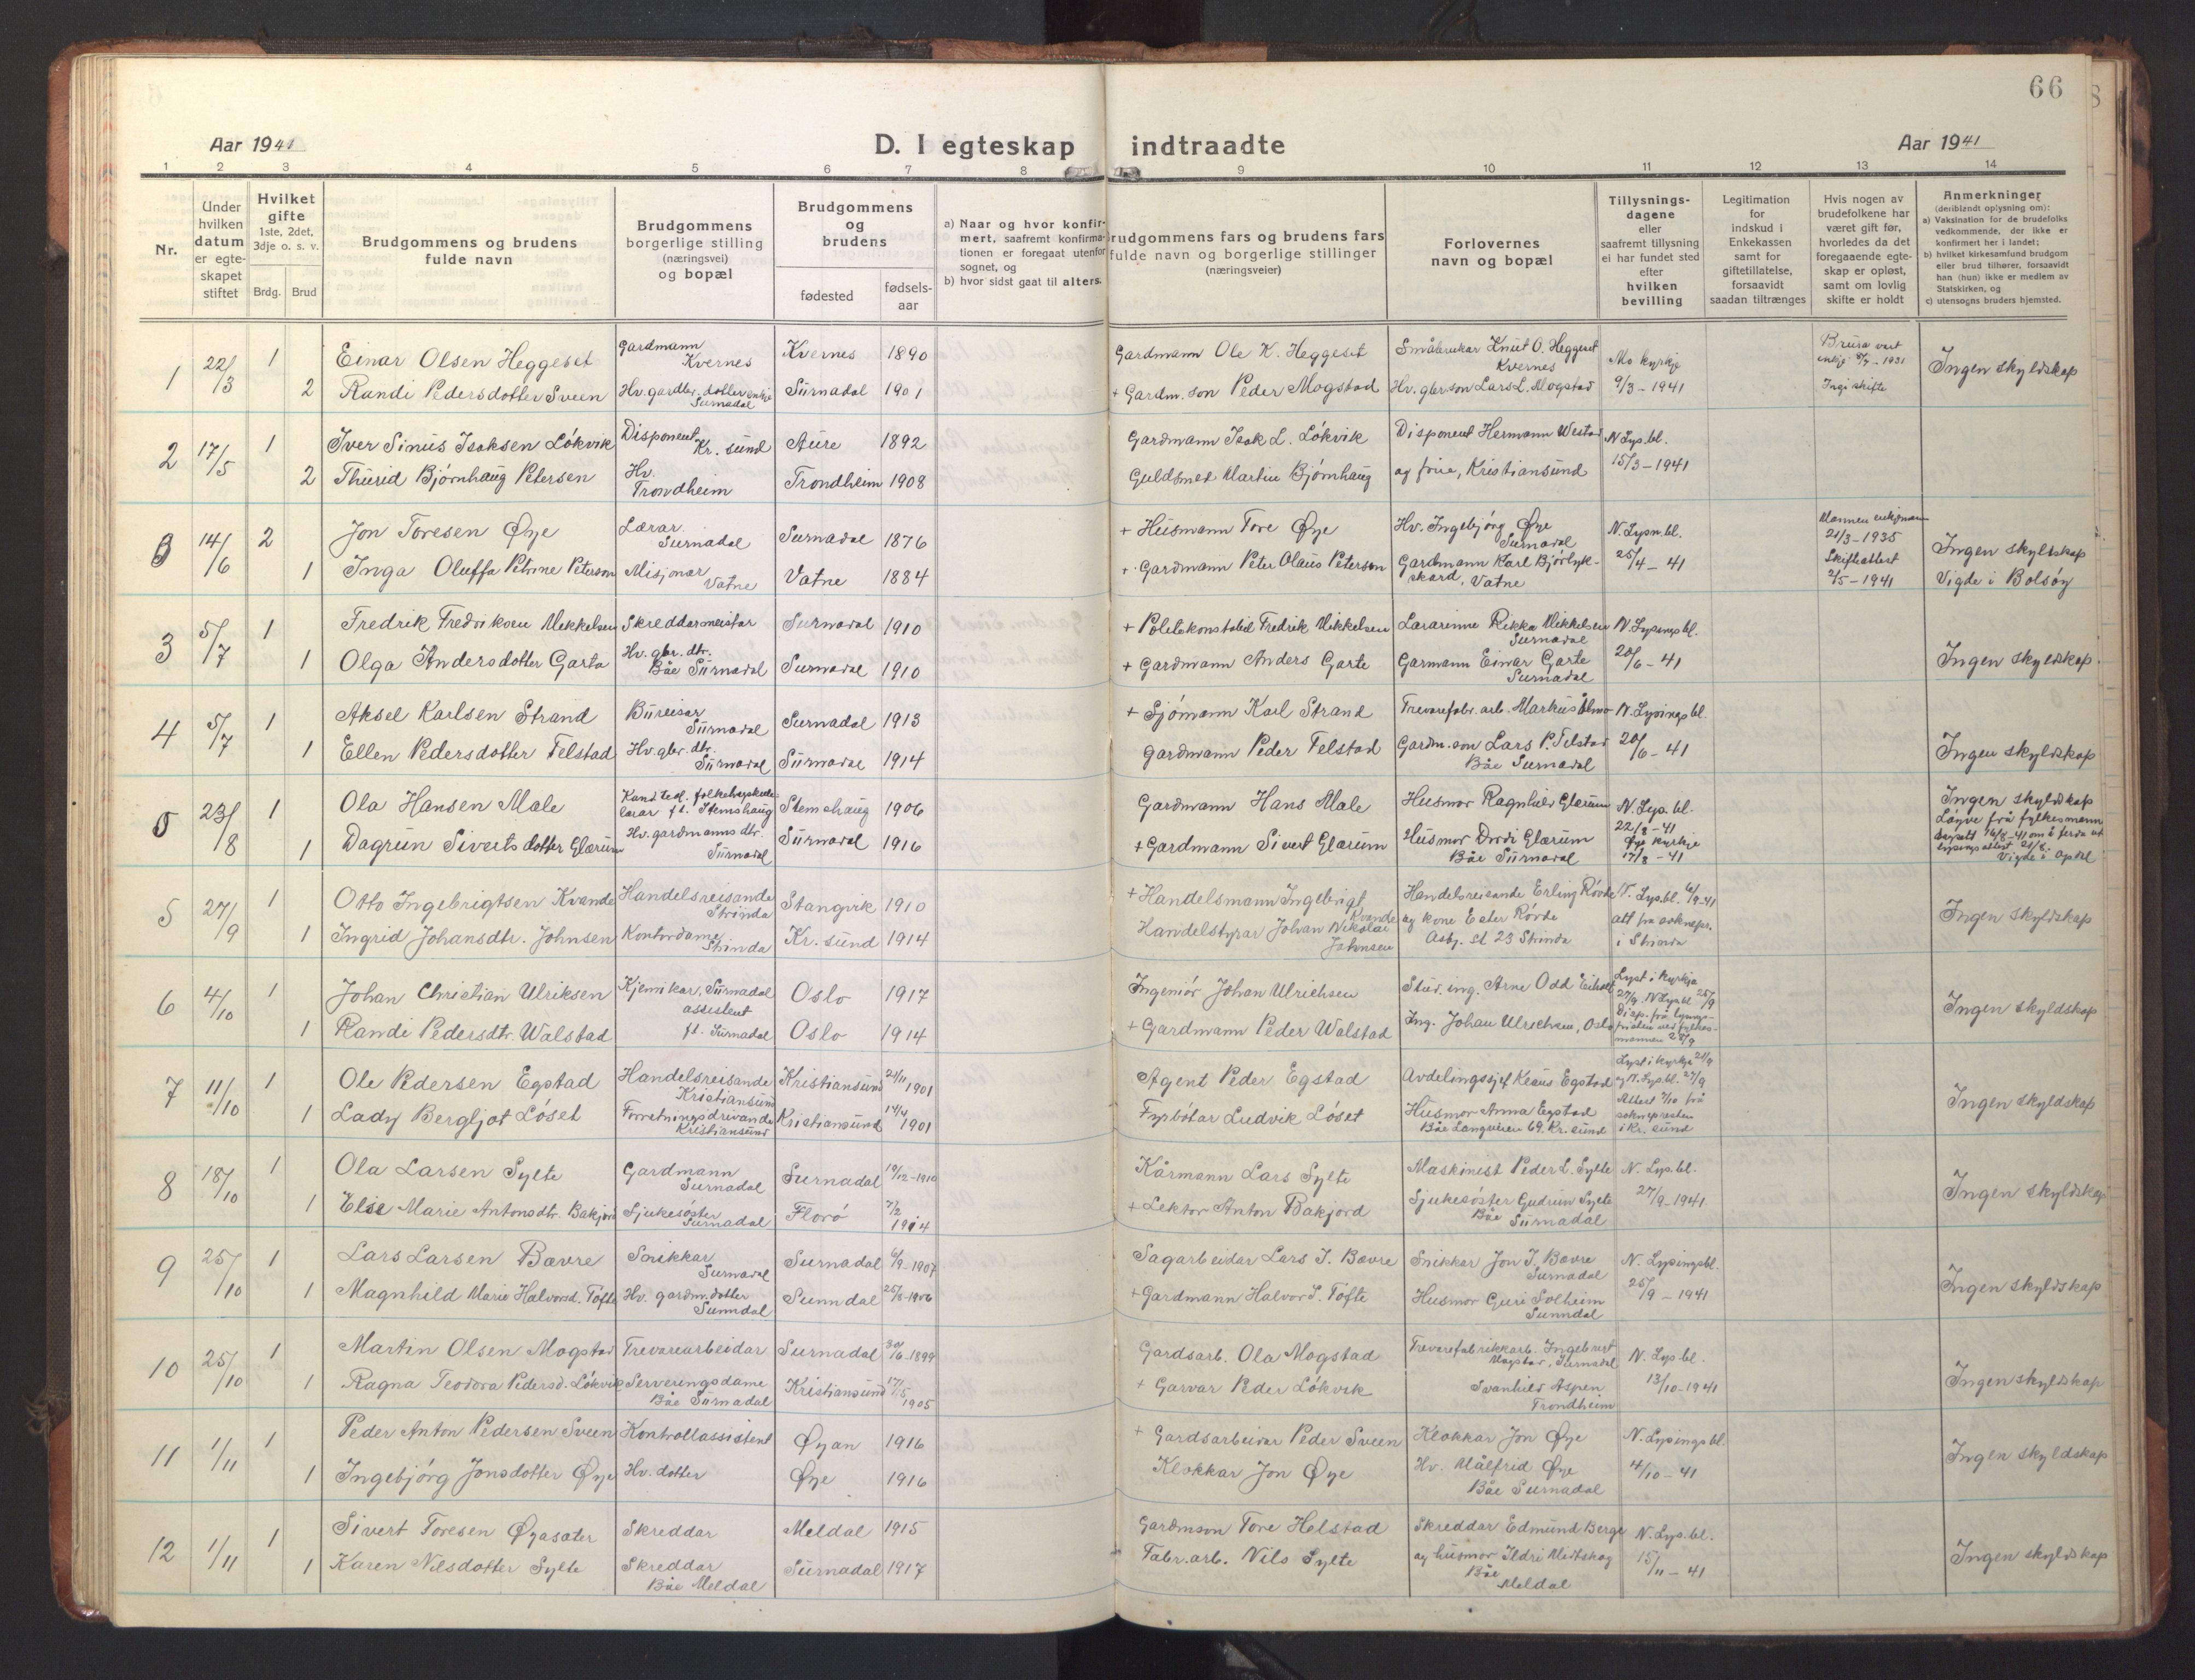 66
Aar 1941
D. I egteskap indtraadte
Aar 1941
1 2 3 4 5 6 7 8 9 10 11 12 13 14
Nr.
Under hvilken datum er egte-skapet stiftet
Hvilket gifte 1ste, 2det, 3dje o. s. v.
Brdg. Brud
Brudgommens og brudens fulde navn
Brudgommens borgerlige stilling (næringsvei) og bopæl
Brudgommens og brudens
fødested
fødsels-aar
a) Naar og hvor konfir-mert, saafremt konfirma-tionen er foregaat utenfor sognet, og
b) hvor sidst gaat til alters.
Brudgommens fars og brudens fars fulde navn og borgerlige stillinger (næringsveier)
Forlovernes navn og bopæl
Tillysnings-dagene eller saafremt tillysning ei har fundet sted efter hvilken bevilling
Legitimation for indskud i Enkekassen samt for giftetillatelse, forsaavidt saadan tiltrænges
Hvis nogen av brudefolkene har været gift før, hvorledes da det foregaaende egte-skap er opløst, samt om lovlig skifte er holdt
Anmerkninger (deriblandt oplysning om):
a) Vaksination for de brudefolks vedkommende, der ikke er konfirmert her i landet;
b) hvilket kirkesamfund brudgom eller brud tilhører, forsaavidt han (hun) ikke er medlem av Statskirken, og
c) utensogns bruders hjemsted.
1 22/3 1 Einar Olsen Heggeset Gardmann Kvernes Kvernes 1890 Gardmann Ole K. Heggeset Småbrukar Knut O. Heggeset Kvernes Mo kyrkje Brura vart enkje 1931
2 Randi Pedersdotter Sveen Hv. gardbr. dotter enkje Surnadal Surnadal 1901 + Gardm. son Peder Mogstad Hv. gbr son Lars L. Mogstad 9/3 – 1941 Ingi skifte Ingen skyldskap
2 17/5 1 Iver Sinus Isaksen Lökvik Disponent Kr. sund Aure 1892 Gardmann Isak L. Lökvik Disponent Hermann Westad N. Lys. bl.
2 Thurid Bjørnhaug Petersen Hv. Trondheim Trondheim 1908 Guldsmed Martin Bjørnhaug og frue, Kristiansund 15/3 – 1941
3 14/6 2 Jon Toresen Øye Lærar Surnadal Surnadal 1876 + Husmann Tore Øye Hv. Ingebjörg Øye Surnadal N. Lysn. bl. Mannen enkjemann 21/3 – 1935
1 Inga Oluffa Petrine Peterson Misjonær Vatne Vatne 1884 + Gardmann Peter Olaus Peterson Gardmann Karl Bjørlyk-skard, Vatne 25/4 – 41 Skifteattest 2/5 – 1941 Ingen skyldskap Vigde i Bolsöy
3 5/7 1 Fredrik Fredriksen Mikkelsen Skreddarmeistar Surnadal 1910 + Politikonstabel Fredrik Mikkelsen Lærarinne Rikka Mikkelsen Surnadal N. Lysings bl.
1 Olga Andersdotter Garta Hv. gbr. dtr. Båe Surnadal Surnadal 1910 + Gardmann Anders Garte Garmann Einar Garte Surnadal 20/6 – 41 Ingen skyldskap
4 5/7 1 Aksel Karlsen Strand Bureisar Surnadal Surnadal 1913 + Sjömann Karl Strand Trevarefabr. arb. Markus Almo N. Lysings bl.
1 Ellen Pedersdotter Telstad Hv. gbr. dtr. Surnadal Surnadal 1914 Gardmann Peder Telstad Gardm. son Lars P. Telstad Båe Surnadal 20/6 – 41 Ingen skyldskap
5 23/8 1 Ola Hansen Male Kand. teol. folkehøgskulelærar ft. Stemshaug Stemshaug 1906 Gardmann Hans Male Husmor Ragnhild Glærum N. Lys. bl. 22/8 – 41 Ingen skyldskap
1 Dagrun Siverts dotter Glærum Hv. gardmanns dtr. Surnadal Surnadal 1916 + Gardmann Sivert Glærum Husmor Dordi Glærum Båe Surnadal Øye kyrkje 17/8 – 41 Løyve frå fylkesmann 16/8 – 41 om å ferda ut lysingsattest 21/8. Vigde i Opdal
5 27/9 1 Otto Ingebrigtsen Kvande Handelsreisande Strinda Stangvik 1910 + Handelsmann Ingebrigt Kvande Handelsreisande Erling Rövde N. Lys. bl. 6/9-41
1 Ingrid Johansdtr. Johnsen Kontordame Strinda Kr. sund 1914 Handelstyrar Johan Nikolai Johnsen og kone Ester Rövde Asbj. st 23 Strinda att frå soknepr. i Strinda Ingen skyldskap
6 4/10 1 Johan Christian Ulriksen Kjemikar, Surnadal assistent Oslo 1917 Ingeniör Johan Ulrichsen Stud. ing. Arne Odd Lyst i kyrkja 27/9. N. Lys. bl 25/9
1 Randi Pedersdtr. Walstad ft. Surnadal Oslo 1914 + Gardmann Peder Walstad Ing. Johan Ulrichsen, Oslo Disp. frå lysings-fristen ved fylkes-mannen Ingen skyldskap
7 11/10 1 Ole Pedersen Egstad Handelsreisande Kristiansund Kristiansund 21/11 1901 Agent Peder Egstad Avdelingssjef Klaus Egstad Lyst i kyrkje 21/9 og N. Lys. bl. 27/9
1 Lady Bergljot Löset Forretningsdrivande Kristiansund Kristiansund 14/4 1901 Fyrbötar Ludvik Löset Husmor Anna Egstad Båe Langveien 69. Kr. sund Attest 7/10 frå soknepresten i Kr. sund Ingen skyldskap
8 18/10 1 Ola Larsen Sylte Gardmann Surnadal Surnadal 19/12 – 1910 Kårmann Lars Sylte Maskinist Peder L. Sylte N. Lys. bl.
1 Else Marie Antonsdtr. Bakjord Sjukesöster Surnadal Florö 7/2 1914 + Lektor Anton Bakjord Sjukesöster Gudrun Sylte Båe Surnadal 27/9 – 1941 Ingen skyldskap
9 25/10 1 Lars Larsen Bævre Snikkar Surnadal Surnadal 6/9 – 1907 Sagarbeidar Lars J. Bævre Snikkar Jon J. Bævre Surnadal N. Lysingsbl.
1 Magnhild Marie Halvorsd. Töfte Hv. gardm. dotter Sunndal Sunndal 1906 + Gardmann Halvor S. Töfte Husmor Guri Solheim Sunndal 25/9 – 1941 Ingen skyldskap
10 25/10 1 Martin Olsen Mogstad Trevarearbeidar Surnadal 30/6 – 1899 Gardsarb. Ola Mogstad Trevarefabrikkarb. Ingebrigt Mogstad, Surnadal N. Lys. bl.
1 Ragna Teodora Pedersd. Lökvik Serveringsdame Båe Surnadal Kristiansund 17/5 1905 + Garvar Peder Lökvik Svanhild Aspen Trondheim 13/10 – 1941 Ingen skyldskap
11 1/11 1 Peder Anton Pedersen Sveen Kontrollassistent Øyan 1916 + Gardsarbeidar Peder Sveen Klokkar Jon Øye N. Lysings bl.
1 Ingebjörg Jonsdotter Øye Hv. dotter Øye 1916 Klokkar Jon Øye Hv. Målfrid Øye Båe Surnadal 4/10 – 41 Ingen skyldskap
12 1/11 1 Sivert Toresen Øyasæter Skreddar Meldal 1915 Gardmson Tore Helstad Skreddar Edmund Berge N. Lys. bl.
1 Karen Nilsdotter Sylte Skreddar Båe Meldal Surnadal 1917 Fabr. arb. Nils Sylte og husmor Ildri Midtskog Båe Meldal 15/11 – 41 Ingen skyldskap